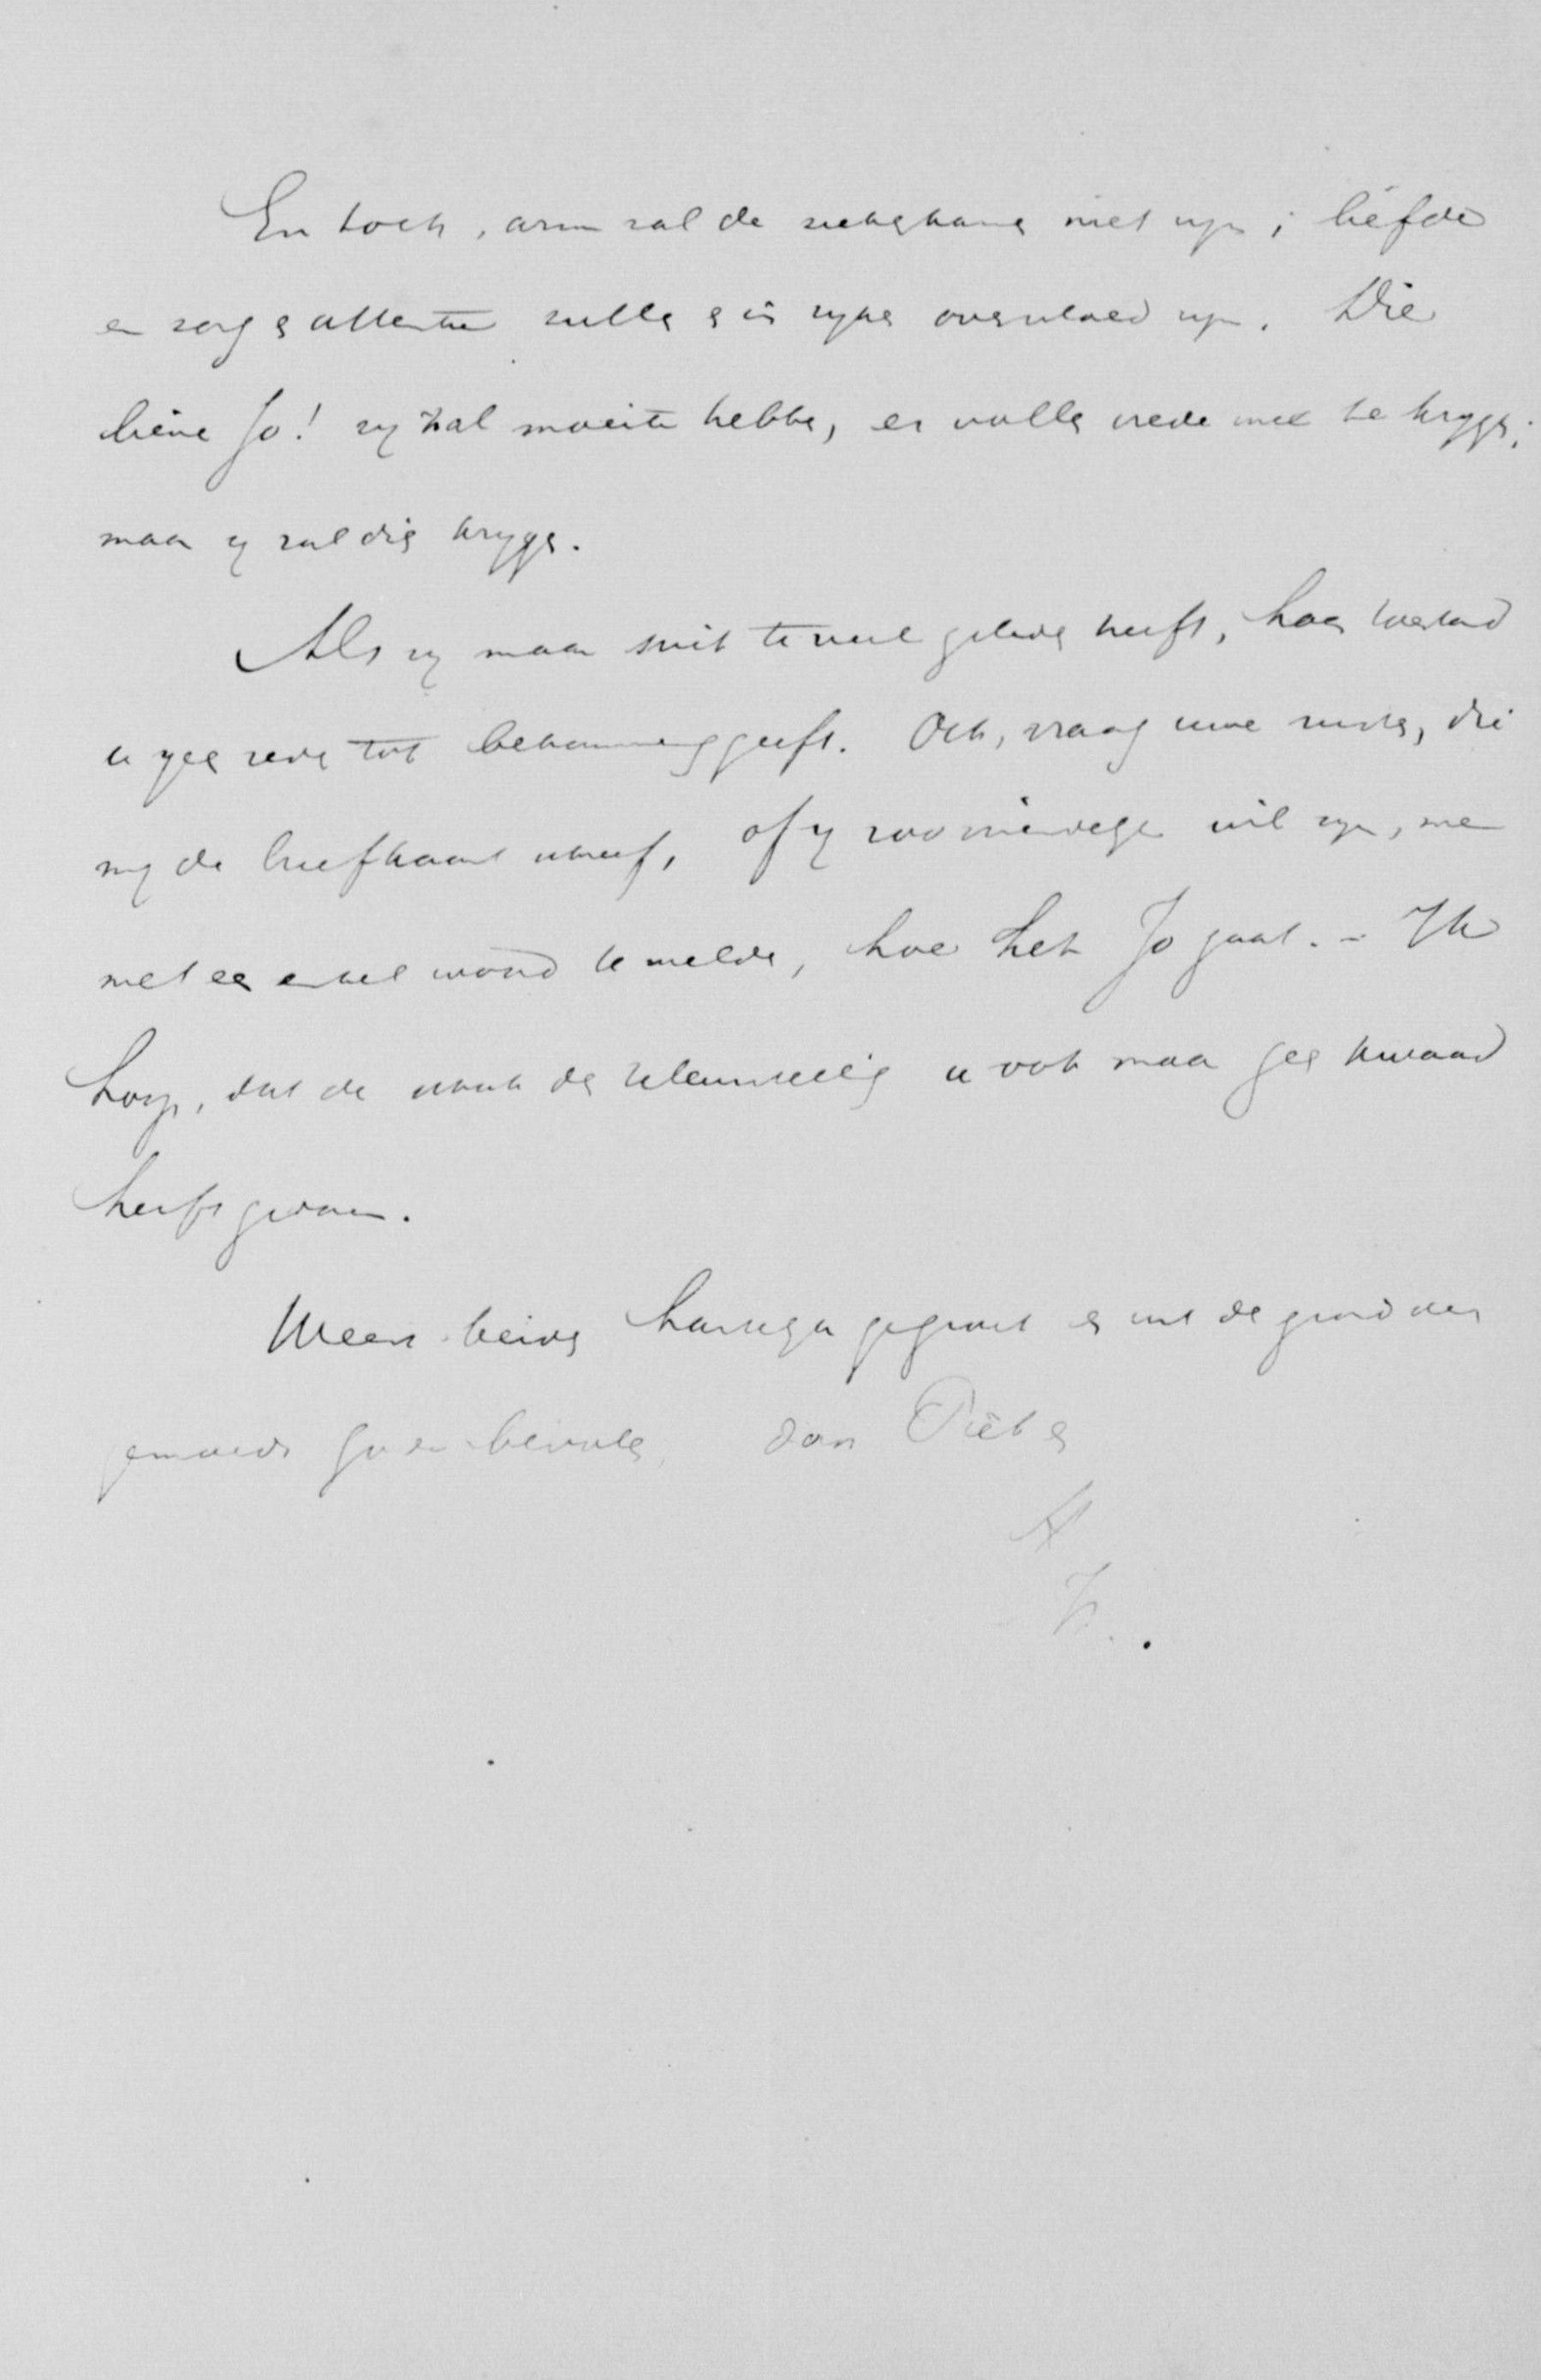 En toch, arm zal de ziekenkamer niet zijn; liefde
en zorg en attentie zullen er in rijken overvloed zijn. Die
lieve Jo! zij zal moeite hebben, er vollen vrede mee te krijgen;
maar zij zal dien krijgen.
Als zij maar niet te veel geleden heeft, haar toestand
u geen reden tot bekommering geeft. Och, vraag uwe zuster, die
mij de briefkaart schreef, of zij zoo vriendelijk wil zijn, me
met een enkel woord te melden, hoe het Jo gaat. - Ik
hoop, dat de schrik der u ook maar geen kwaad
heeft gedaan.
Weest beiden hartelijk gegroet en uit den grond des
gemoeds Gode bevolen, door Piet en